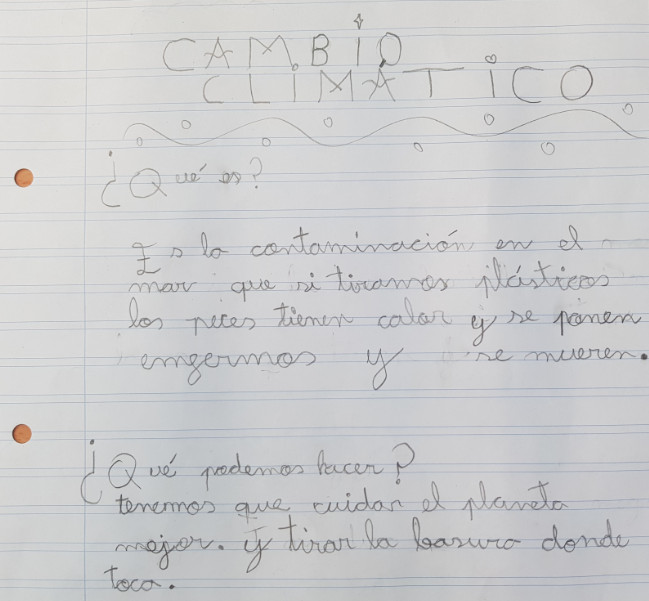 CAMBIO
CLIMÁTICO
¿Qué es?
Es la contaminación en el
mar que si tiramos plásticos
los peces tienen calor y se ponen
emgermos y se mueren.
¿Qué podemos hacer?
tenemos que cuidar el planeta
mejor. y tirar la basura donde
toca.